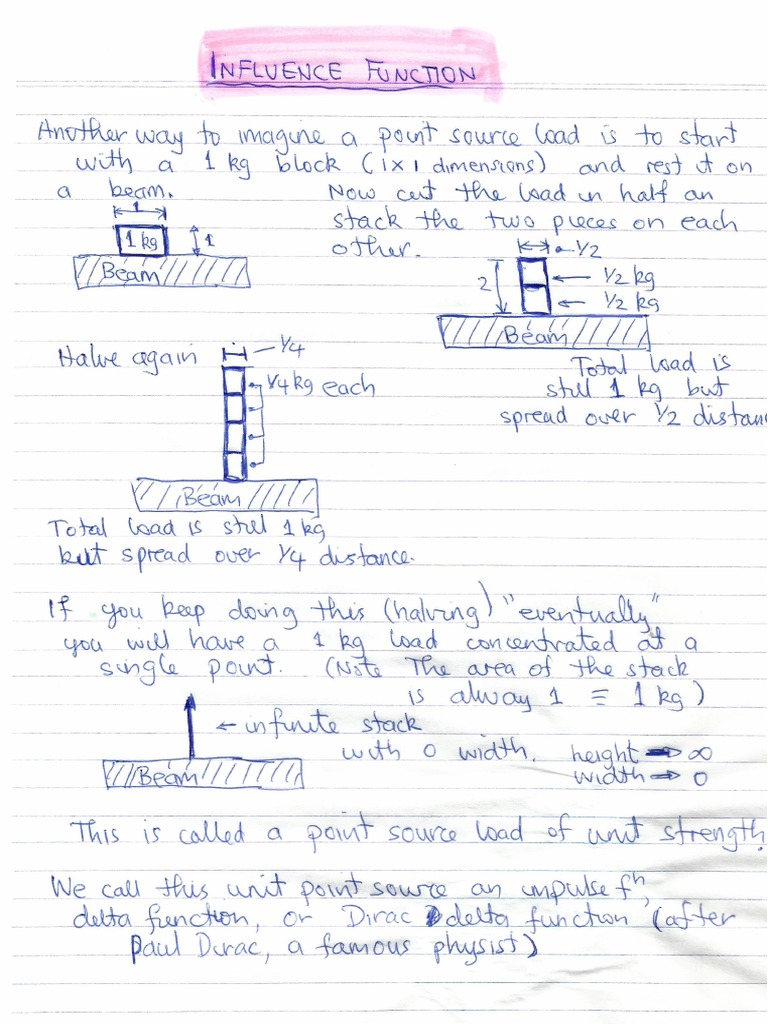 INFLUENCE FUNCTION
Another way to imagine a point source load is to start
with a 1 kg block (1x1 dimensions) and rest it on
a beam.
Now cut the load in half an
stack the two pieces on each
other.
1
1 kg
1
Beam
1/2
2
1/2 kg
1/2 kg
Beam
Total load is
still 1 kg but
spread over 1/2 distan
Halve again
1/4
1/4 kg each
Beam
Total load is still 1 kg
but spread over 1/4 distance.
If you keep doing this (halving) "eventually"
you will have a 1 kg load concentrated at a
single point. (Note The area of the stack
is alway 1 ≡ 1 kg)
← infinite stack
with 0 width.
height → ∞
width → 0
Beam
This is called a point source load of unit strength.
We call this unit point source an impulse fⁿ,
delta function, or Dirac delta function (after
Paul Dirac, a famous physist)